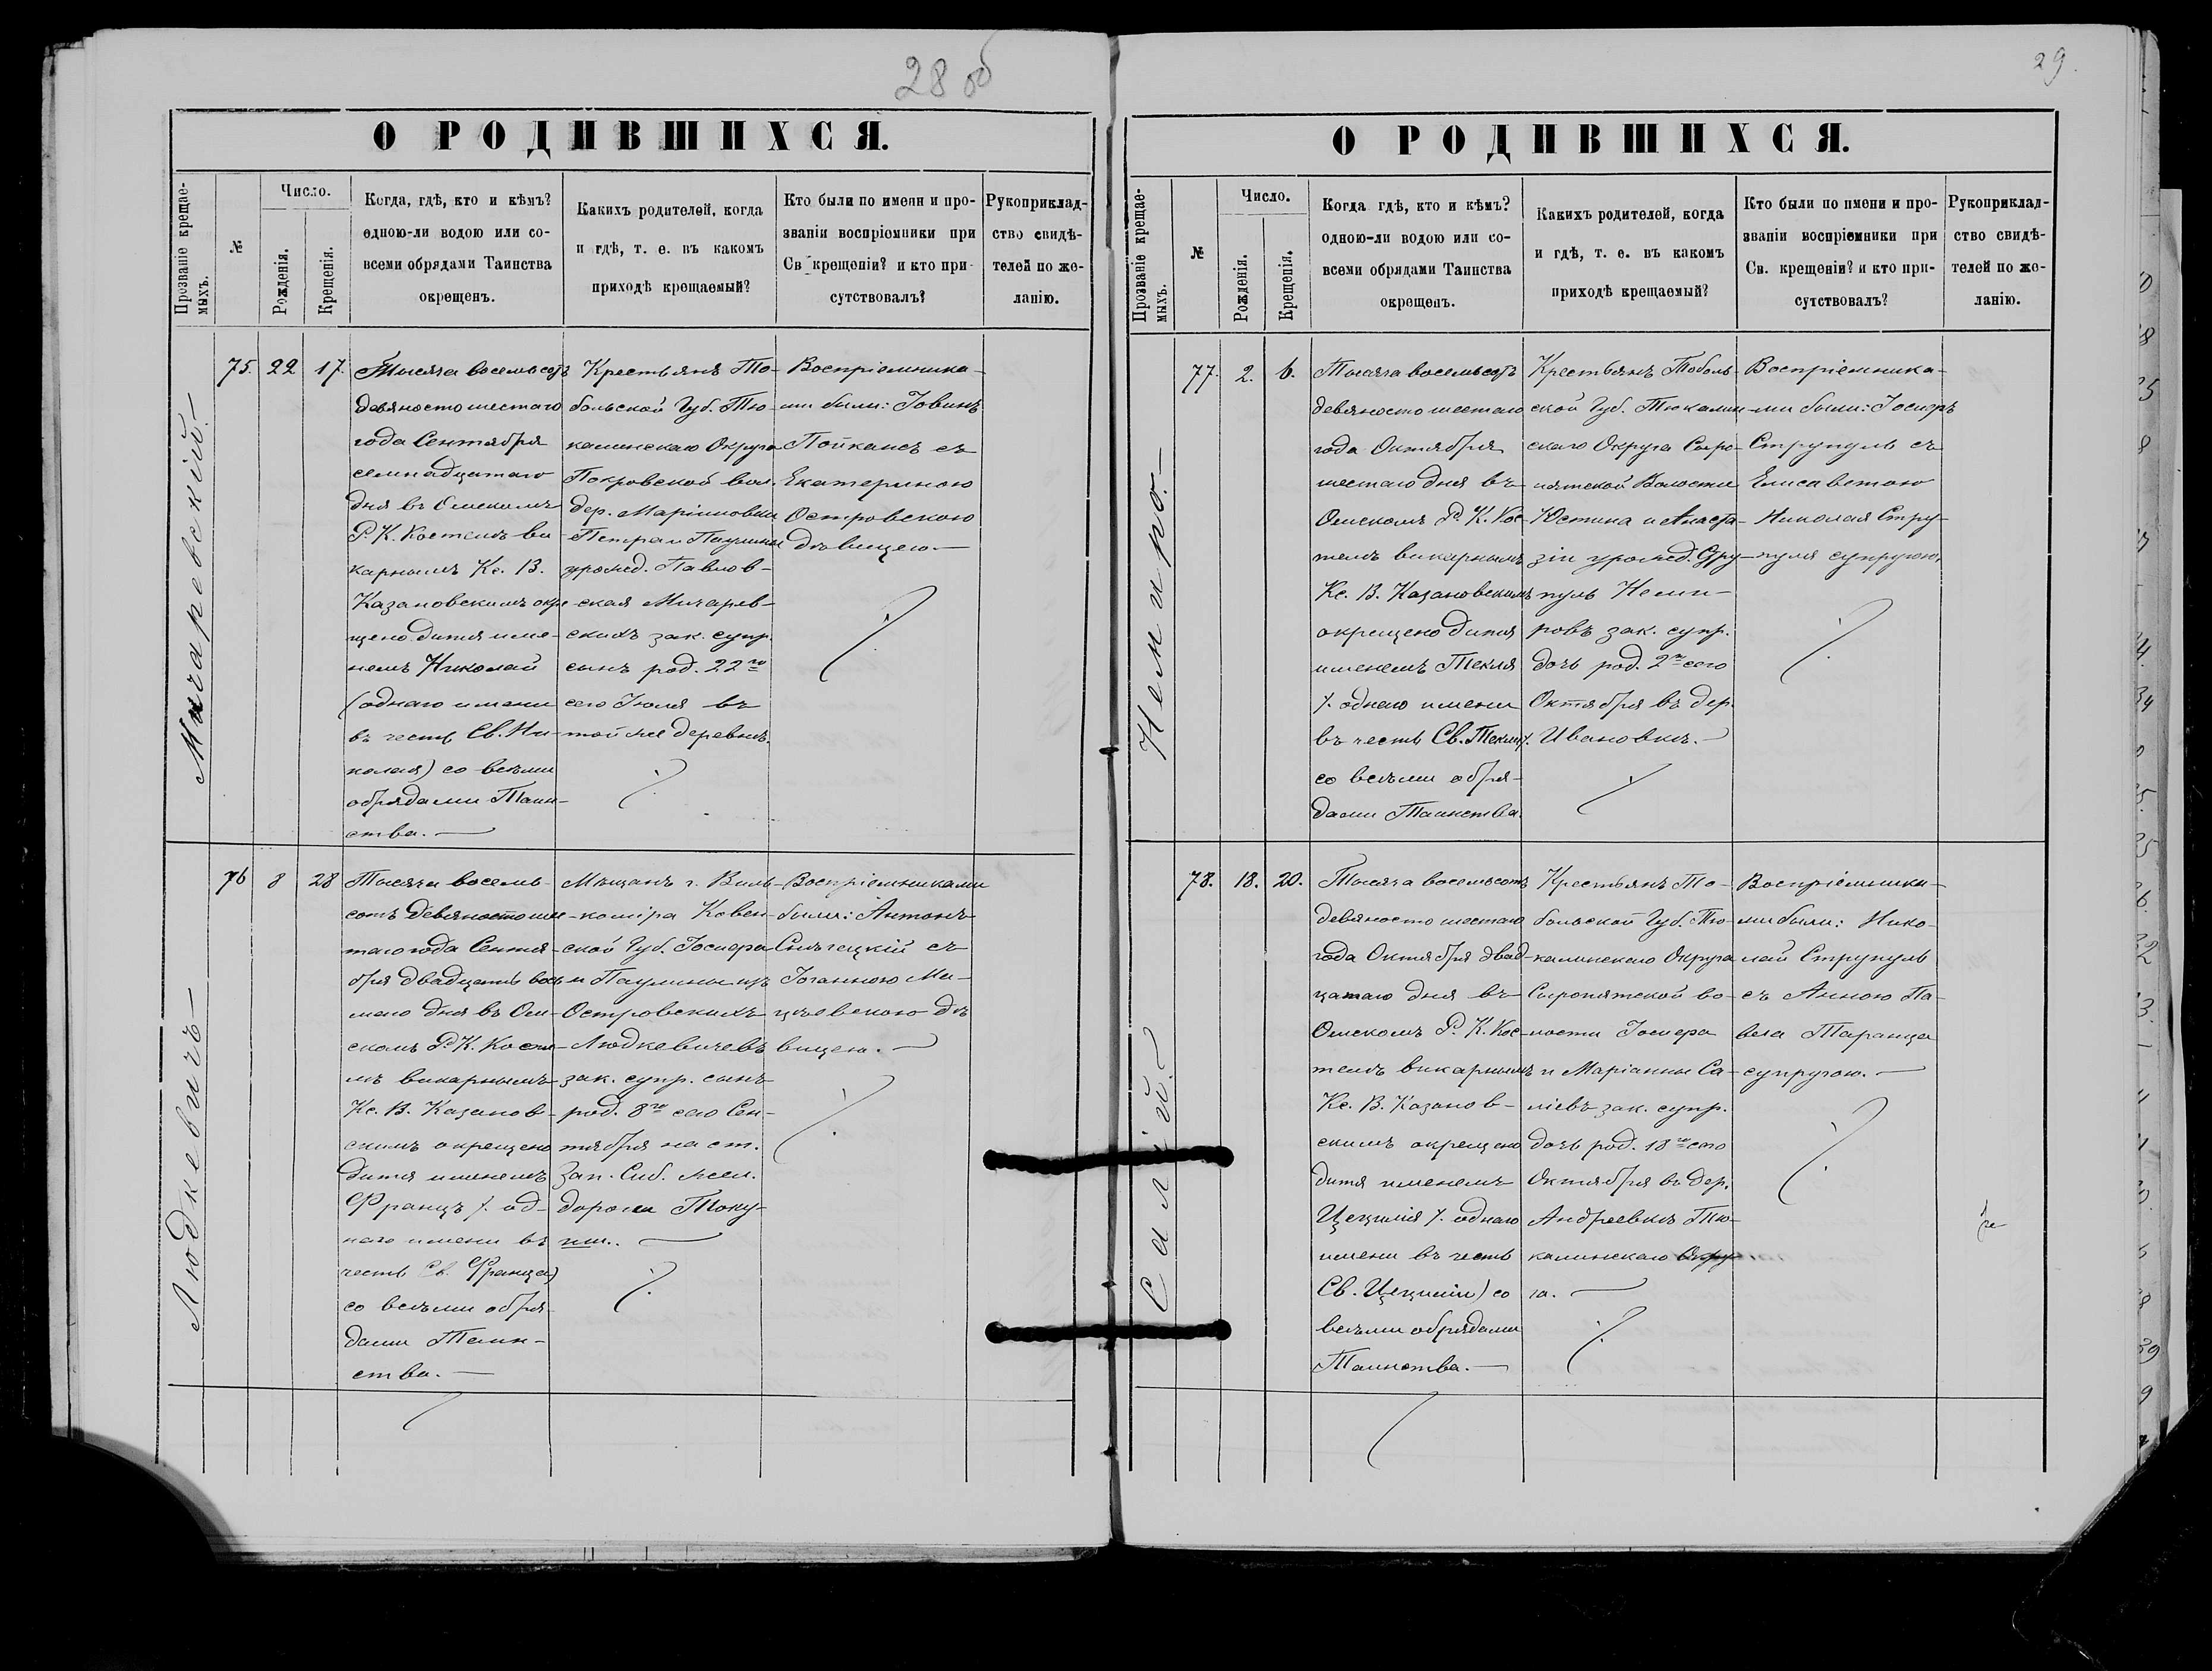 28 об
О РОДИВШИХСЯ.
Прозваніе крещае-
мыхъ.
№
Число.
Рожденія.
Крещенія.
Когда, гдѣ, кто и кѣмъ?
одною-ли водою или со-
всеми обрядами Таинства
окрещенъ.
Какихъ родителей, когда
и гдѣ, т. е. въ какомъ
приходѣ крещаемый?
Кто были по имени и про-
званіи воспріомники при
Св крещеніи? и кто при-
сутствовалъ?
Рукоприклад-
ство свидѣ-
телей по же-
ланію.
Мичаревскій.
75. 22 17.
Тысяча восемьсотъ
девяносто шестаго
года Сентября
семнадцатаго
дня въ Омскомъ
Р. К. Костелѣ ви-
карнымъ Кс. В.
Казановскимъ окре-
щено дитя име-
немъ Николай
(однаго имени
въ честь Св. Ни-
колая) со всѣми
обрядами Таин-
ства.
Крестьянъ То-
больской Губ. Тю-
калинскаго Округа
Покровской вол.
дер. Маріановки
Петра и Паулины
урожд. Павлов-
ская Мичарев-
скихъ зак. супр.
сынъ род. 22го
сего Іюля въ
той же деревнѣ.
Воспріемника-
ми были: Іовинъ
Пойкансъ съ
Екатериною
Островскою
дѣвицею.
Людкевичъ
76 8 28
Тысяча восемь-
сотъ девяносто шес-
таго года Сентя-
бря двадцать вось-
маго дня въ Ом-
скомъ Р. К. Косте-
лѣ викарнымъ
Кс. В. Казанов-
скимъ окрещено
дитя именемъ
Францъ /. од-
наго имени въ
честь Св. Франца)
со всѣми обря-
дами Таин-
ства.
Мѣщанъ г. Виль-
коміра Ковен-
ской Губ. Іосифа
и Паулины изъ
Островскихъ
Людкевичевъ
зак. супр. сынъ
род. 8го сего Сен-
тября на ст.
Зап. Сиб. жел.
дороги
Воспріемниками
были: Антонъ
съ
Іоганною
дѣ-
вицею.
29.
О РОДИВШИХСЯ.
Прозваніе крещае-
мыхъ.
№
Число.
Рожденія.
Крещенія.
Когда гдѣ, кто и кѣмъ?
одною-ли водою или со-
всеми обрядами Таинства
окрещенъ.
Какихъ родителей, когда
и гдѣ, т. е. въ какомъ
приходѣ крещаемый?
Кто были по имени и про-
званіи воспріемники при
Св. крещеніи? и кто при-
сутствовалъ?
Рукоприклад-
ство свидѣ-
телей по же-
ланію.
Немиро.
77. 2. 6.
Тысяча восемьсотъ
девяносто шестаго
года Октября
шестаго дня въ
Омскомъ Р. К. Кос-
телѣ викарнымъ
Кс. В. Казановскимъ
окрещено дитя
именемъ Текля
/. однаго имени
въ честь Св. Текли/.
со всѣми обря-
дами Таинства.
Крестьянъ Тоболь-
ской Губ. Тюкалин-
скаго Округа Сыро-
пятской Волости
Юстина и Анаста-
зіи урожд. Стру-
пуль Неми-
ровъ зак. супр.
дочь род. 2го сего
Октября въ дер.
Ивановкѣ.
Воспріемника-
ми были: Іосифъ
Струпуль съ
Елисаветою
Николая Стру-
пуля супругою.
Салій.
78. 18. 20.
Тысяча восемьсотъ
девяносто шестаго
года Октября двад-
цатаго дня въ
Омскомъ Р. К. Кос-
телѣ викарнымъ
Кс. В. Казанов-
скимъ окрещено
дитя именемъ
Цецилія /. однаго
имени въ честь
Св. Цециліи) со
всѣми обрядами
Таинства.
Крестьянъ То-
больской Губ. Тю-
калинскаго Округа
Сыропятской во-
лости Іосифа
и Маріанны Са-
ліевъ зак. супр.
дочь род. 18го сего
Октября въ дер.
Андреевкѣ Тю-
калинскаго Окру-
га.
Воспріемника-
ми были: Нико-
лай Струпуль
съ Анною Па-
вела Таранца
супругою.